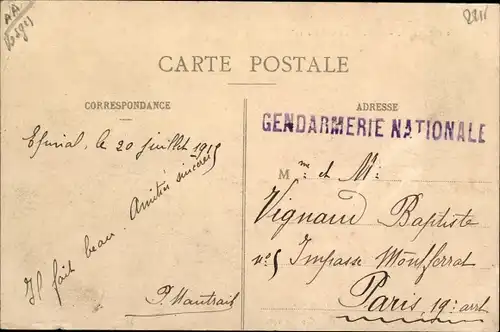 AA
Vosges
CARTE POSTALE
CORRESPONDANCE
Epinal, le 20 juillet 1915
Il fait beau. Amitiés sincères
P. Mautrait
ADRESSE
GENDARMERIE NATIONALE
Mme et M:
Vignaud Baptiste
n°5 Impasse Montferrat
Paris, 19: arrt